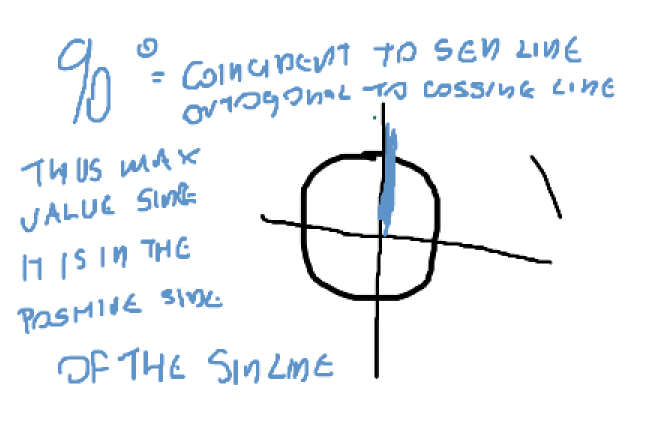 90° = COINCIDENT TO SEN LINE
ORTOGONAL TO COSSINE LINE
THUS MAX
VALUE SINE
IT IS IN THE
POSITIVE SIDE
OF THE SIN LINE